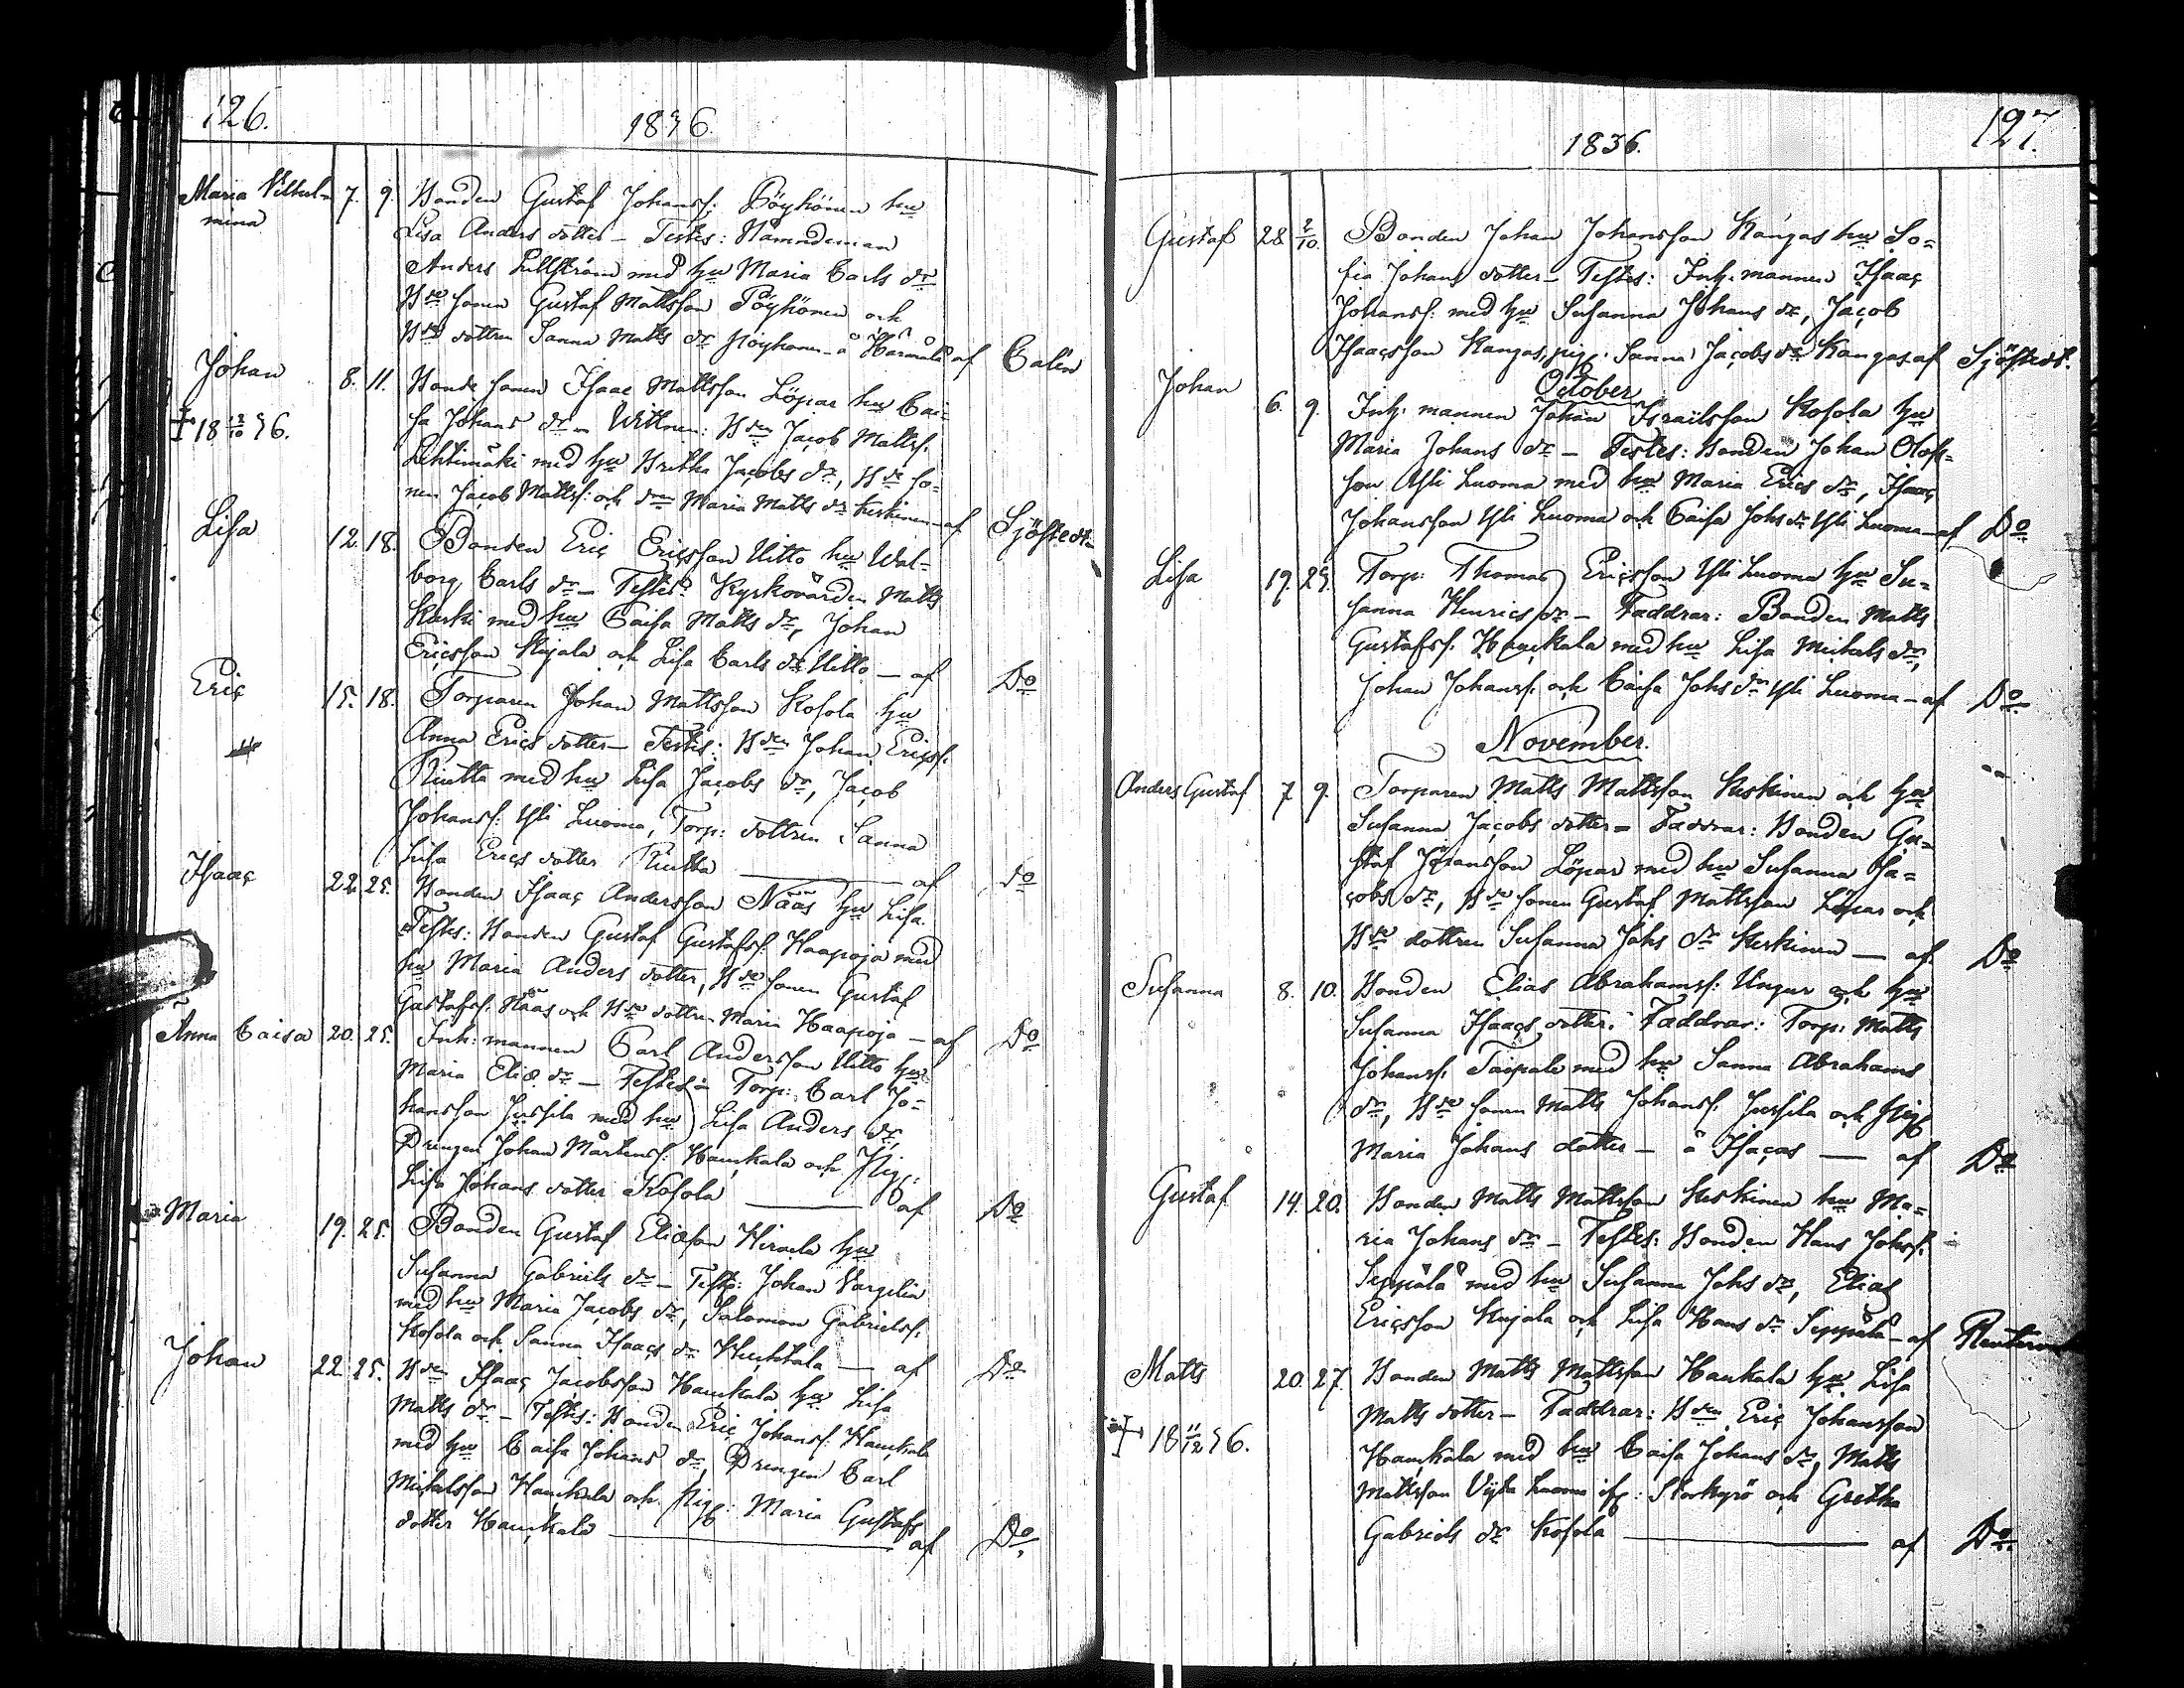 126.
1836.
Maria Vilhel-
mina
7. 9. Bonden Gustaf Johanss: Pöyhönen hu
Lisa Anders dotter – Testes: Nämndeman
Anders Lillström med hu Maria Carls dr
Bde sonen Gustaf Mattsson Pöyhönen och
Bde dottren Sanna Matts dr Pöyhönen å Härmälä af Calén
Johan 8. 11. Bonde sonen Isaac Mattsson Löpar hu Cai-
sa Johans dr – Wittnen: Bden Jacob Matts:
‡ 18 12/10 36.
Lehtimäki med hu Bretha Jacobs dr, Bde so-
nen Jacob Matts: och dren Maria Matts dr Keskinen – af Sjöstedt
Lisa 12. 18. Bonden Eric Ericsson Uitto hu Wal-
borg Carls dr – Testes: Kyrkovärden Matts
Kurki med hu Caisa Matts dr, Johan
Ericsson Kujala och Lisa Carls dr Uitto – af Do
Eric 15. 18. Torparen Johan Mattsson Kosola hu
Anna Erics dotter – Testes: Bden Johan Erics:
Riutta med hu Lisa Jacobs dr, Jacob
Johanss: Yli Luoma, Torp: dottren Sanna
Lisa Erics dotter Riutta — af Do
Isaac 22. 25. Bonden Isaac Andersson Nääs hu Lisa
Testes: Bonden Gustaf Gustafs: Haapoja med
hu Maria Anders dotter, Bde sonen Gustaf
Gustafss: Nääs och Bde dottren Maria Haapoja – af Do
Anna Caisa 20. 25. Inh: mannen Carl Andersson Uitto hu
Maria Eliæ dr – Testes: Torp: Carl Jo-
hansson Jussila med hu Lisa Anders dr,
Drengen Johan Mårtens: Hauckala och Pig:
Lisa Johans dotter Kosola — af Do
Maria 19. 25. Bonden Gustaf Eliæson Hirvela hu
Susanna Gabriels dr – Test: Johan Vargelin
med hu Maria Jacobs dr, Salomon Gabriels:
Kosola och Sanna Isaacs dr Huhtala — af Do
Johan 22. 25. Bden Isaac Jacobsson Hauckala hu Lisa
Matts dr – Testes: Bonden Eric Johanss: Hauckala
med hu Caisa Johans dr, Drengen Carl
Michelsson Hauckala och Pig: Maria Gustafs
dotter Hauckala — af Do.
1836.
127.
Gustaf 28. 2/10. Bonden Johan Johansson Kangas hu So-
fia Johans dotter – Testes: Inh. mannen Isaac
Johanss: med hu Susanna Johans dr, Jacob
Isaacsson Kangas, pig: Sanna Jacobs dr Kangas af Sjöstedt.
October
Johan 6. 9. Inh: mannen Johan Israëlsson Kosola hu
Maria Johans dr – Testes: Bonden Johan Olofs-
son Yli Luoma med hu Maria Erics dr, Isaac
Johansson Yli Luoma och Caisa Johs dr Yli Luoma – af Do
Lisa 19. 25. Torp: Thomas Ericsson Yli Luoma hu Su-
sanna Henrics dr – Faddrar: Bonden Matts
Gustafss: Hauckala med hu Lisa Michels dr,
Johan Johanss: och Caisa Johs dr Yli Luoma – af Do
November.
Anders Gustaf 7 9. Torparen Matts Mattsson Keskinen och hu
Susanna Jacobs dotter – Faddrar: Bonden Gu-
staf Johansson Löpar med hu Susanna Ja-
cobs dr, Bde sonen Gustaf Mattsson Löpar och
Bde dottren Susanna Johs dr Keskinen — af Do
Susanna 8. 10. Bonden Elias Abrahams: Ungur och hu
Susanna Isaacs dotter. Faddrar: Torp: Matts
Johanss: Taipale med hu Sanna Abrahams
dr, Bde sonen Matts Johanss: Jussila och Pig
Maria Johans dotter – å Isacas — af Do
Gustaf 14. 20. Bonden Matts Mattsson Keskinen hu Ma-
ria Johans dr – Testes: Bonden Hans Johs:
Seppälä med hu Susanna Johs dr, Elias
Ericsson Kujala och Lisa Hans dr Seppälä – af
Matts 20. 27. Bonden Matts Mattsson Haukala hu Lisa
Matts dotter – Faddrar: Bden Eric Johansson
‡ 18 11/12 36.
Hauckala med hu Caisa Johans dr, Matts
Mattsson Luoma ifr: Storkyro och Gretha
Gabriels dr Kosola — af Do.